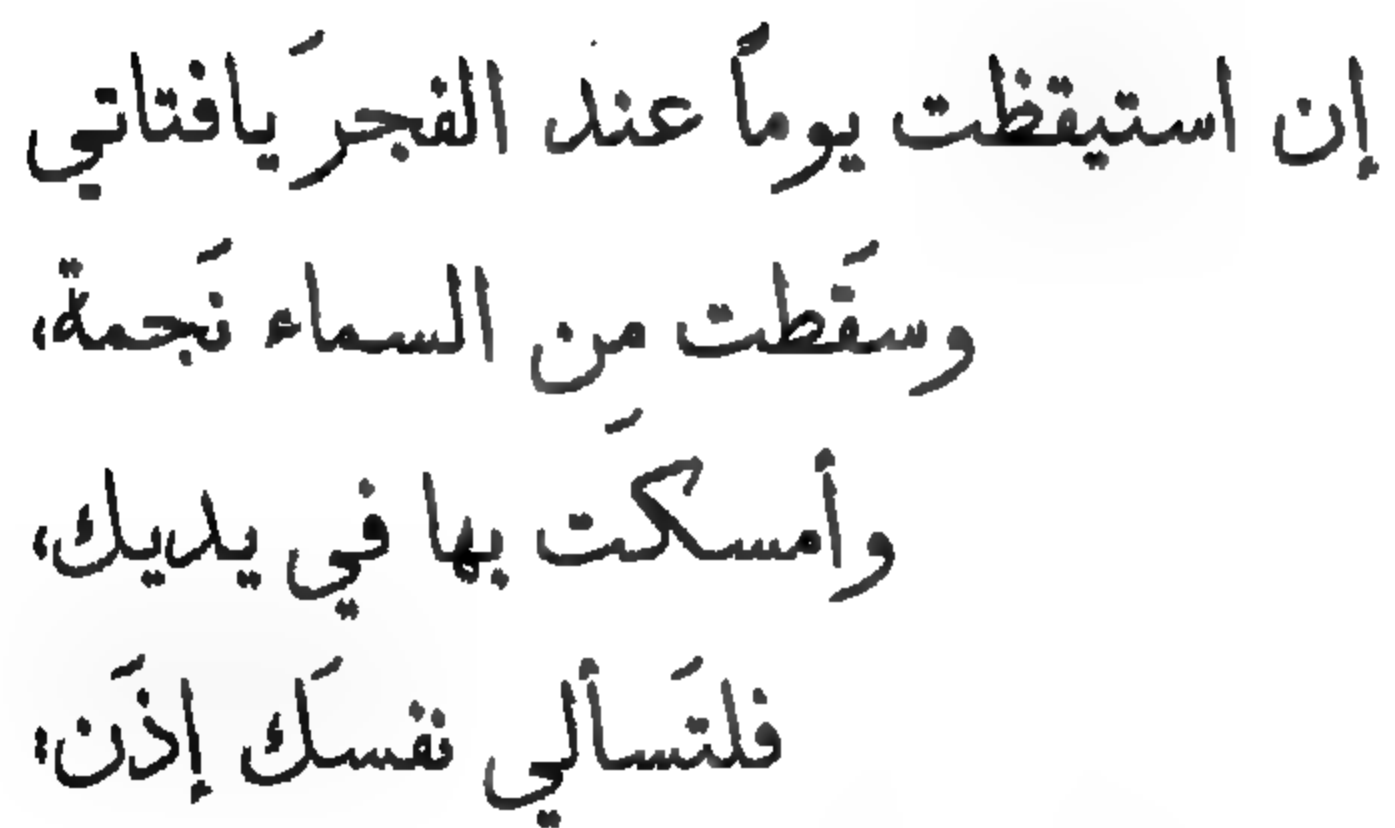 إن استيقظت يوماً عند الفجرَ يافتاتي
وسقَطت من السماء نَجمة،
وأمسكَت بها في يديك،
فلتَسألي نفسَك إذَن: